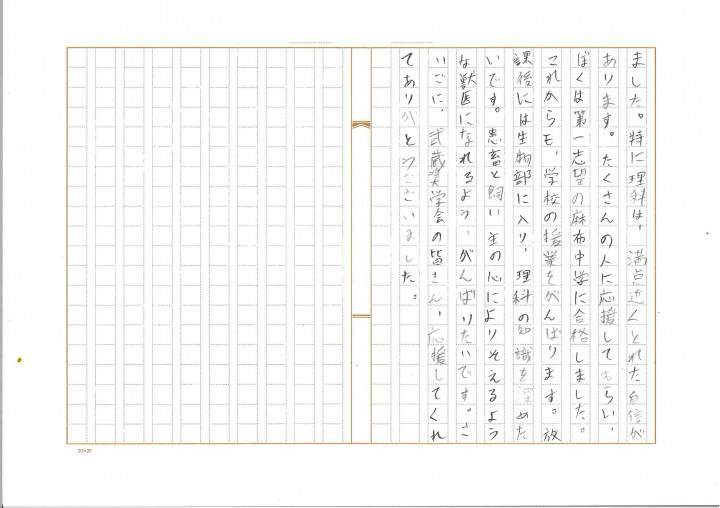 ました。特に理科は、満点近くとれた自信が
あります。たくさんの人に応援してもらい、
ぼくは第一志望の麻布中学に合格しました。
これからも、学校の授業をがんばります。放
課後には生物部に入り、理科の知識を深めた
いです。患畜と飼い主の心によりそえるよう
な獣医になれるよう、がんばりたいです。さ
いごに、武蔵美学会の皆さん、応援してくれ
てありがとうございました。
20×20